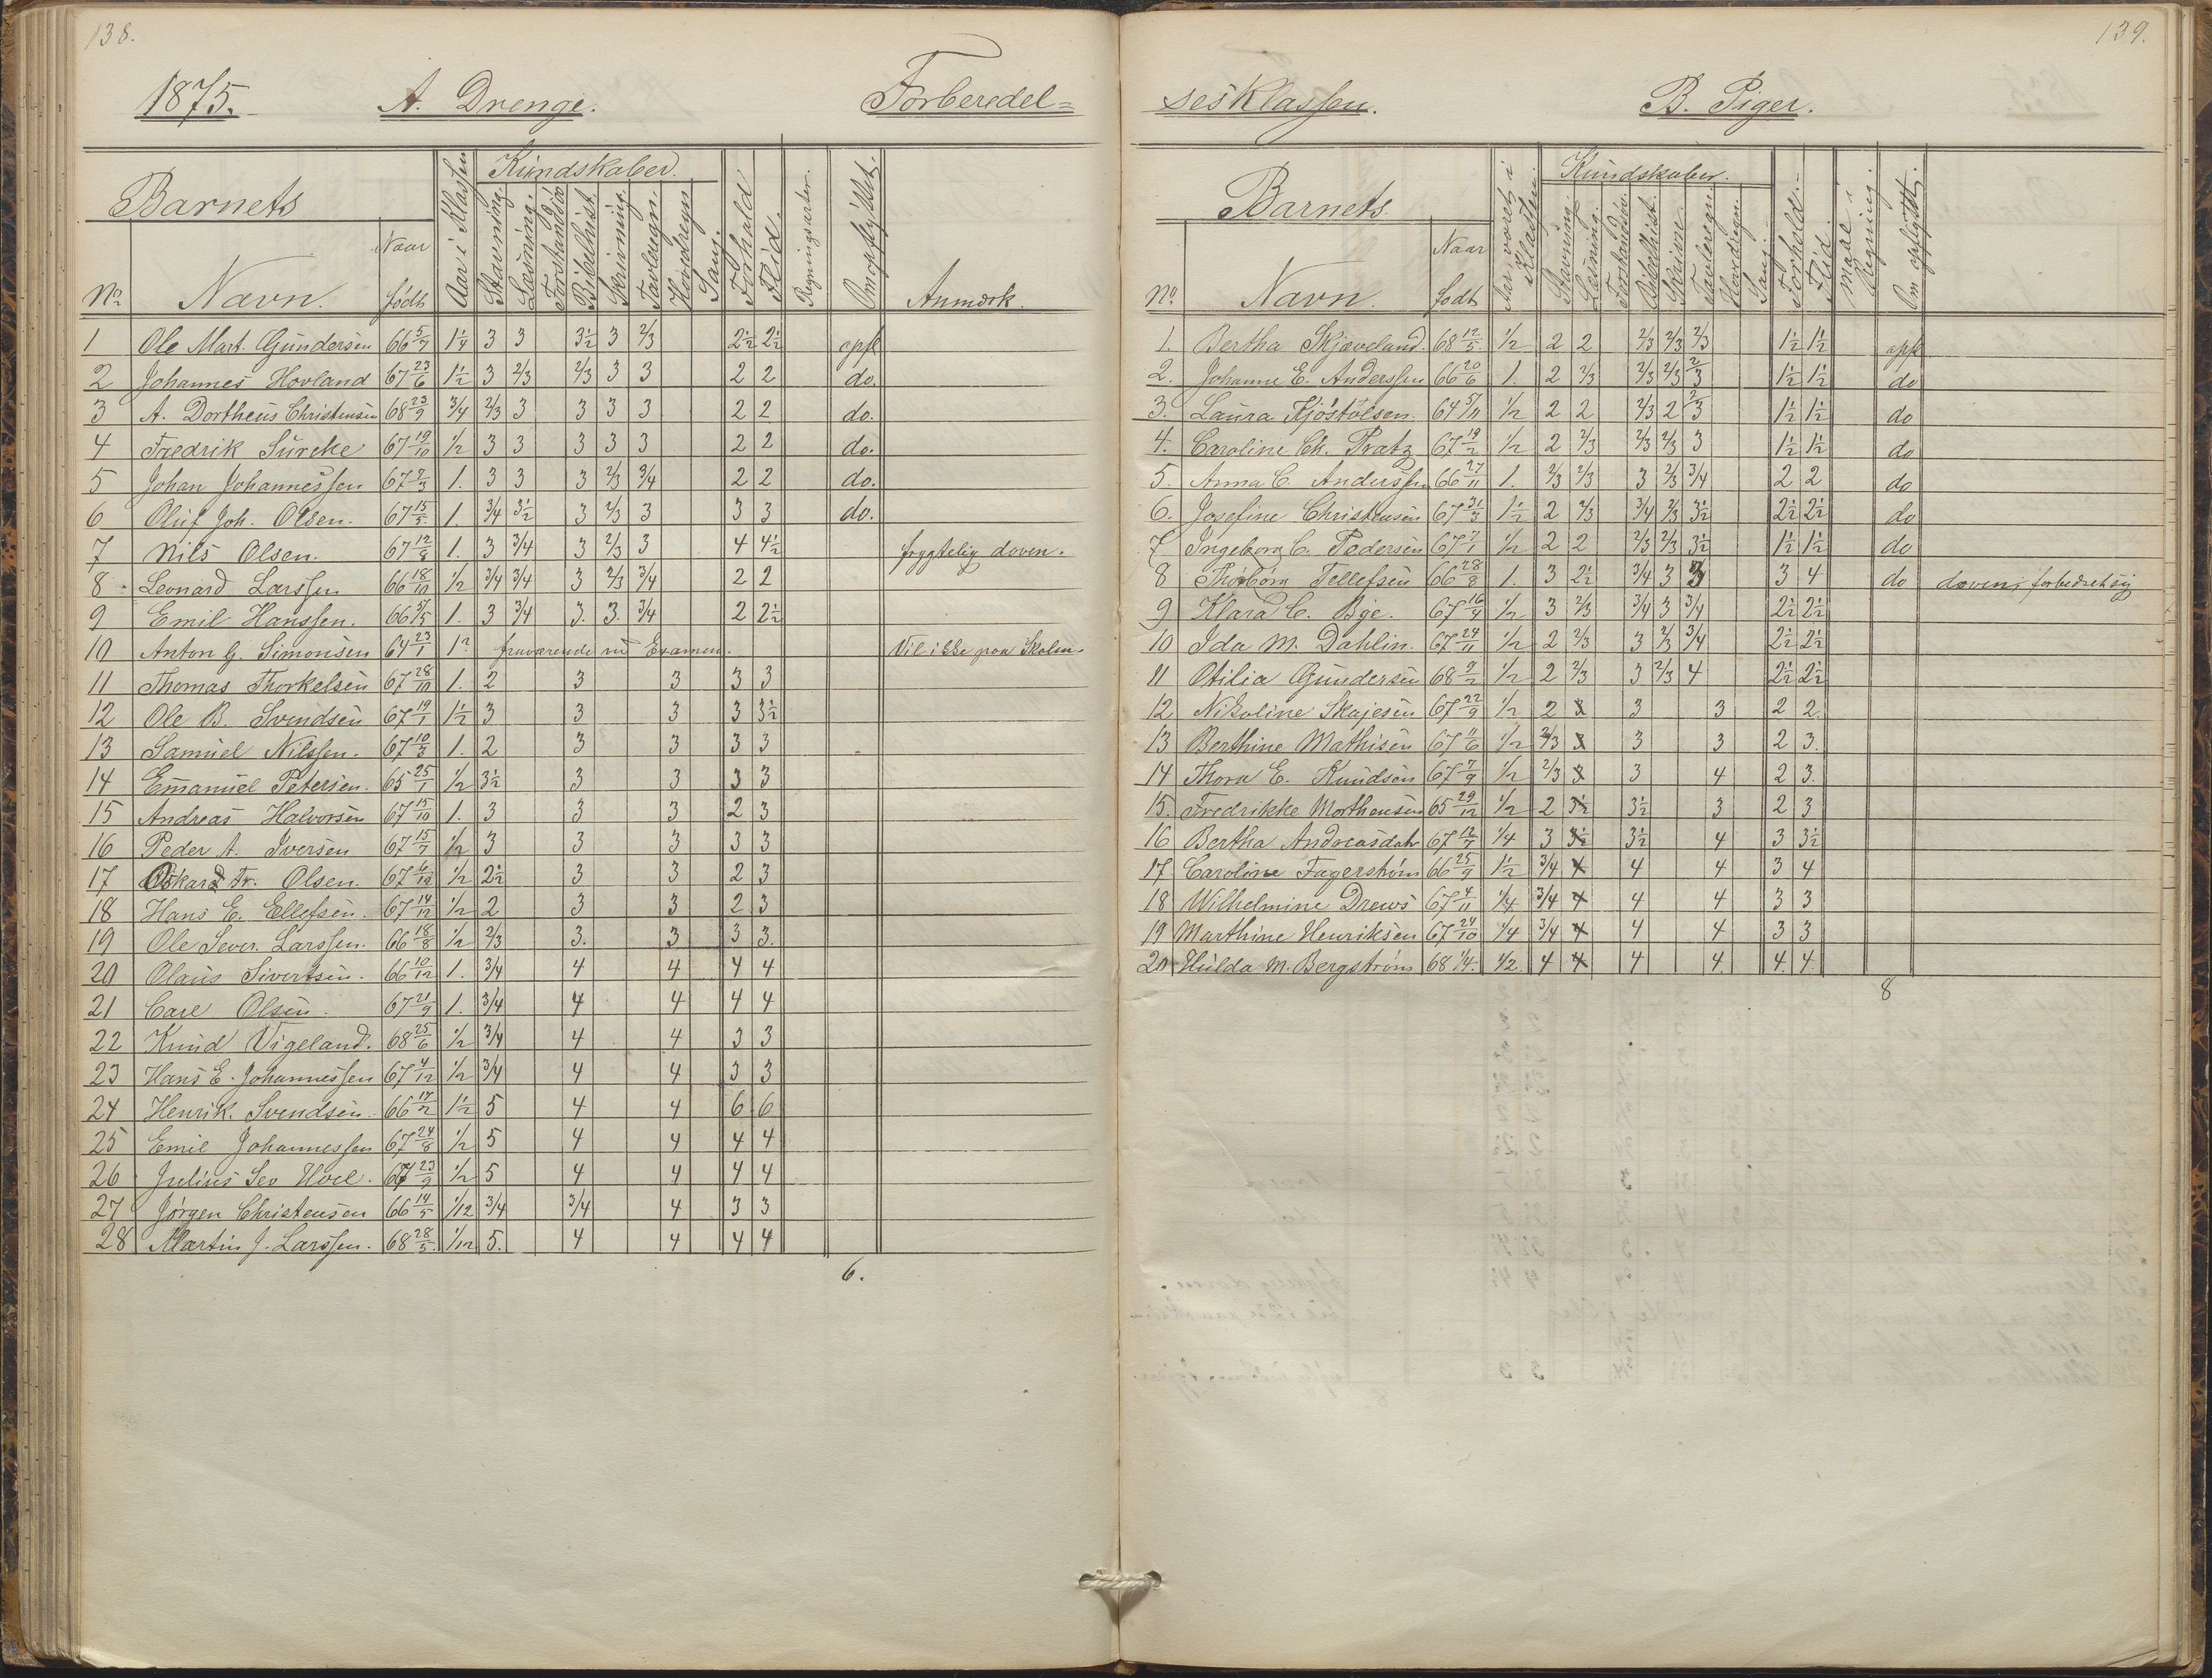 138.
1875. A. Drenge. Forberedel=
Barnets Aar i Klassen Kundskaber. Forhold Flid. Regningsarter. Om opflyttet. Anmærk.
No Navn. Naar født Stavning. Læsning. Forstandsøv Bibelhist. Skrivning. Tavleregn. Hovedregn Sang.
1 Ole Mart. Gundersen 66 5/7 1 1/4 3 3 3 1/2 3 2/3 2 1/2 2 1/2 opfl
2 Johannes Hovland 67 23/6 1 1/2 3 2/3 2/3 3 3 2 2 do.
3 A. Dortheus Christensen 68 23/9 3/4 2/3 3 3 3 3 2 2 do.
4 Fredrik Surcke 67 19/10 1/2 3 3 3 3 3 2 2 do.
5 Johan Johannessen 67 9/3 1. 3 3 3 2/3 3/4 2 2 do.
6 Oluf Joh. Olsen. 67 15/5 1. 3/4 3 1/2 3 2/3 3 3 3 do.
7 Nils Olsen. 67 12/8 1. 3 3/4 3 2/3 3 4 4 1/2 frygtelig doven.
8 Leonard Larssen 66 18/10 1/2 3/4 3/4 3 2/3 3/4 2 2
9 Emil Hanssen. 66 5/5 1. 3 3/4 3. 3. 3/4 2 2 1/2
10 Anton G. Simonsen 64 23/1 1? fraværende ved Examen. Vil ikke paa Skolen
11 Thomas Thorkelsen 67 28/10 1. 2 3 3 3 3
12 Ole B. Svendsen 67 19/1 1 1/2 3 3 3 3 3 1/2
13 Samuel Nilssen. 67 10/3 1. 2 3 3 3 3
14 Emanuel Petersen. 65 25/1 1/2 3 1/2 3 3 3 3
15 Andreas Halvorsen 67 15/10 1. 3 3 3 2 3
16 Peder A. Iversen 67 15/7 1/2 3 3 3 3 3
17 Oskard Fr. Olsen. 67 6/12 1/2 2 1/2 3 3 2 3
18 Hans E. Ellefsen. 67 14/12 1/2 2 3 3 2 3
19 Ole Sever. Larssen. 66 18/8 1/2 2/3 3. 3 3 3.
20 Olaus Sivertsen. 66 10/12 1. 3/4 4 4 4 4
21 Carl Olsen. 67 21/9 1. 3/4 4 4 4 4
22 Knud Vigeland. 68 25/6 1/2 3/4 4 4 3 3
23 Hans E. Johannessen 67 4/12 1/2 3/4 4 4 3 3
24 Henrik. Svendsen. 66 17/2 1 1/2 5 4 4 6 6
25 Emil Johannessen 67 24/8 1/2 5 4 4 4 4
26 Julius Sev Hoel. 67 23/9 1/2 5 4 4 4 4
27 Jørgen Christensen 66 14/5 1/12 3/4 3/4 4 3 3
28 Martin J. Larssen. 68 28/5. 1/12 5. 4 4 4 4
6.
139.
sesklassen. B. Piger.
Barnets Aar været i Klassen. Kundskaber. Forhold. Flid. Maal i Regning. Om opflyttet.
No. Navn. Naar født Stavning. Læsning. Forstandsøv. Bibelhist. Skrivn. Tavleregn. Hovedregn. Sang.
1. Bertha Skjæveland. 68 12/5 1/2 2 2 2/3 2/3 2/3 1 1/2 1 1/2 opfl
2. Johanne E. Anderssen 66 20/6 1. 2 2/3 2/3 2/3 2/3 1 1/2 1 1/2 do
3. Laura Kjøstolsen. 64 5/11 1/2 2 2 2/3 2 2/3 1 1/2 1 1/2 do
4. Caroline Ch. Pratz 67 19/2 1/2 2 2/3 2/3 2/3 3 1 1/2 1 1/2 do
5. Anna C. Anderssen 66 27/11 1. 2/3 2/3 3 2/3 3/4 2 2 do
6. Josefine Christensen 67 31/3 1 1/2 2 2/3 3/4 2/3 3 1/2 2 1/2 2 1/2 do
7 Ingeborg C. Pedersen 67 7/1 1/2 2 2 2/3 2/3 3 1/2 1 1/2 1 1/2 do
8 Thorborg Tellefsen 66 28/8 1. 3 2 1/2 3/4 3 3 3 4 do doven, forbedret sig
9 Klara C. Bye. 67 16/4 1/2 3 2/3 3/4 3 3/4 2 1/2 2 1/2
10 Ida M. Dahlin. 67 24/11 1/2 2 2/3 3 2/3 3/4 2 1/2 2 1/2
11 Otilia Gundersen 68 9/2 1/2 2 2/3 3 2/3 4 2 1/2 2 1/2
12 Nikoline Skajesen 67 22/9 1/2 2 3 3 3 2 2.
13 Berthine Mathisen 67 11/6 1/2 2/3 3 3 3 2 3.
14 Thora E. Knudsen 67 7/9 1/2 2/3 3 3 4 2 3.
15. Fredrikke Morthensen 65 29/12 1/2 2 3 1/2 3 1/2 3 2 3
16 Bertha Andreasdatr 67 12/7 1/4 3 3 1/2 3 1/2 4 3 3 1/2
17 Caroline Fagerstrøm 66 25/9 1 1/2 3/4 4 4 4 3 4
18 Wilhelmine Drews 67 4/11 1/4 3/4 4 4 4 3 3
19 Marthine Henriksen 67 24/10 1/4 3/4 4 4 4 3 3
20 Hulda M. Bergstrøm 68 1/4. 1/2. 4 4 4 4. 4. 4.
8